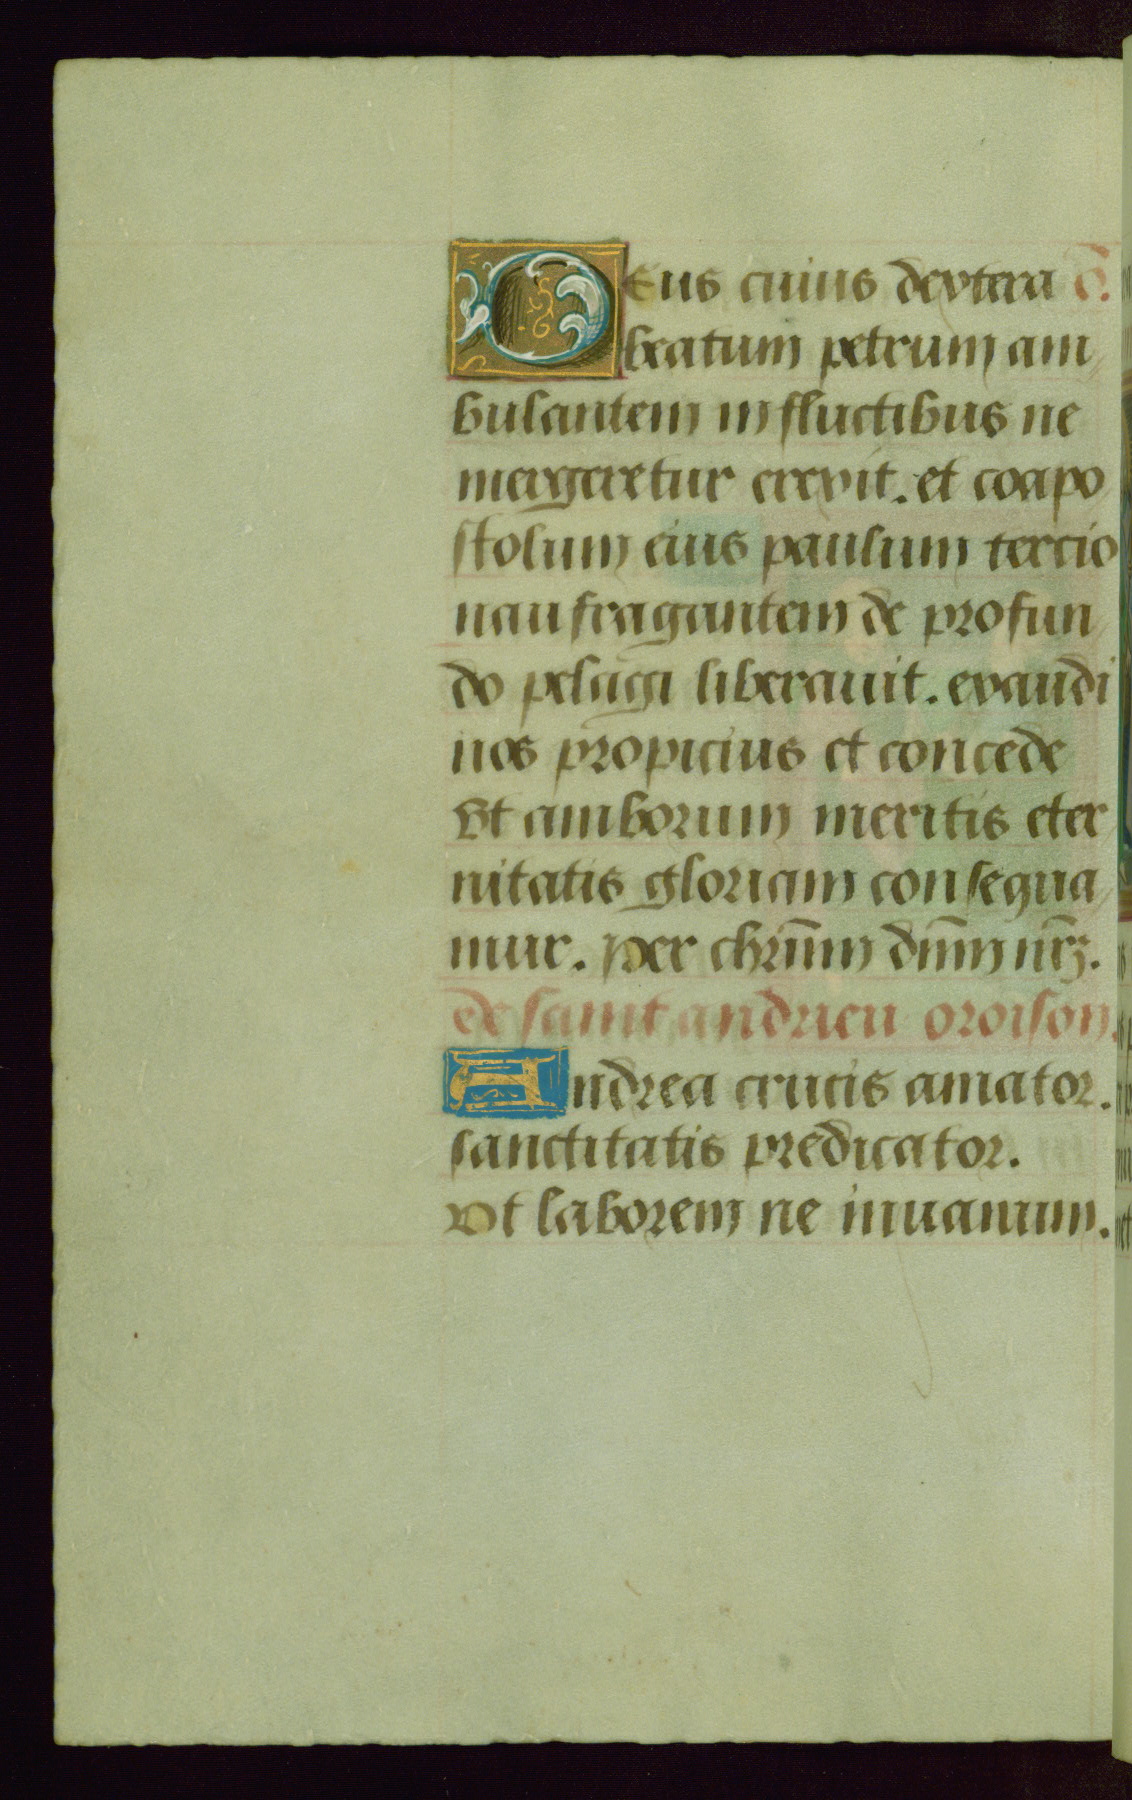 Deus cuius dextera õ.
beatum petrum am
bulantem in fluctibus ne
mergeretur erexit. et coapo
stolum eius paulum tercio
naufragantem de profun
do pelagi liberauit. exaudi
nos propicius et concede
Vt amborum meritis eter
nitatis gloriam consequa
mur. Per christum dn̄m nr̄ꝫ.
de saint andrieu oroison.
Andrea crucis amator.
sanctitatis predicator.
Vt laborem ne inuanum.